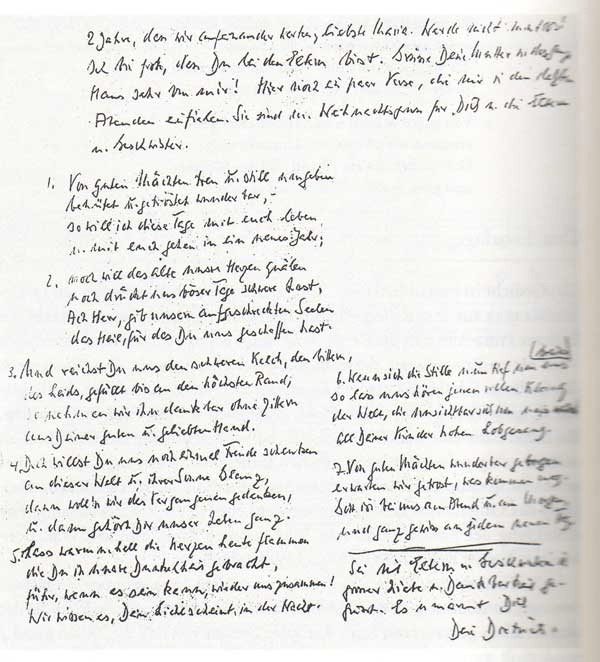 2 Jahre, dass wir aufeinander warten, liebste Maria. Werde nicht mutlos!
Ich bin froh, dass Du bei den Eltern bist. Grüsse Deine Mutter u. das ganze
Haus sehr von mir! Hier noch ein paar Verse, die mir in den letzten
Abenden einfielen. Sie sind der Weihnachtsgruss für Dich u. die Eltern
u. Geschwister.
1. Von guten Mächten treu u. still umgeben
behütet u. getröstet wunderbar, -
so will ich diese Tage mit euch leben
u. mit euch gehen in ein neues Jahr;
2. noch will das alte unsre Herzen quälen
noch drückt uns böser Tage schwere Last,
Ach Herr, gib unsern aufgeschreckten Seelen
das Heil, für das Du uns geschaffen hast.
3. Und reichst Du uns den schweren Kelch, den bittern,
des Leids, gefüllt bis an den höchsten Rand,
so nehmen wir ihn dankbar ohne Zittern
aus Deiner guten u. geliebten Hand.
4. Doch willst Du uns noch einmal Freude schenken
an dieser Welt u. ihrer Sonne Glanz,
dann woll'n wir des Vergangenen gedenken,
u. dann gehört Dir unser Leben ganz.
5. Lass warm u. hell die Kerzen heute flammen
die Du in unsre Dunkelheit gebracht,
führ, wenn es sein kann, wieder uns zusammen!
Wir wissen es, Dein Licht scheint in der Nacht.
6. Wenn sich die Stille nun tief um uns
breitet
so lass uns hören jenen vollen Klang
der Welt, die unsichtbar sich um uns weitet
all Deiner Kinder hohen Lobgesang.
7. Von guten Mächten wunderbar geborgen
erwarten wir getrost, was kommen mag.
Gott ist bei uns am Abend u. am Morgen,
und ganz gewiss an jedem neuen Tag.
Sei mit Eltern u. Geschwistern in
grosser Liebe u. Dankbarkeit ge-
grüsst. Es umarmt Dich
Dein Dietrich.